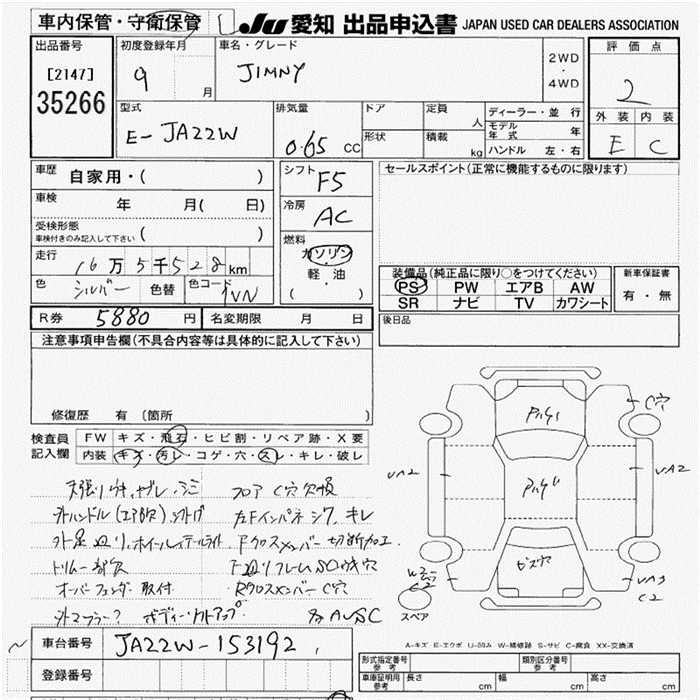 車内保管・守衛保管 JU 愛知 出品申込書 JAPAN USED CAR DEALERS ASSOCIATION
出品番号 初度登録年月 車名・グレード 評価点
[2147] 9 月 JIMNY 2WD・4WD 2
35266
型式 排気量 ドア 定員 人 ディーラー・並行 外装 内装
E-JA22W 0.65 CC 形状 積載 kg モデル年式 年 E C
ハンドル 左・右
車歴 自家用・( ) シフト F5 セールスポイント(正常に機能するものに限ります)
車検 年 月( 日) 冷房 AC
受検形態
車検付きのみ記入して下さい ( ) 燃料
走行 16万5千528km ガソリン
色 シルバー 色替 色コード 軽・油
( )
装備品(純正品に限り○をつけてください) 新車保証書
PS PW エアB AW 有・無
SR ナビ TV カワシート
R券 5880 円 名変期限 月 日 後日品
注意事項申告欄(不具合内容等は具体的に記入して下さい)
修復歴 有(箇所 )
検査員 FW キズ・飛石・ヒビ割・リペア跡・X要
記入欄 内装 キズ・汚レ・コゲ・穴・スレ・キレ・破レ
フロア C穴欠損
外ハンドル(エアB欠)
外足廻り、ホイール Fクロスメンバー切断加工
トリム一部欠
オーバーフェンダー取付 RクロスメンバーC穴
外マフラー? ボディーリフトアップ
C穴
UA2
UA2
C2
UA3
C2
スペア
A-キズ E-エクボ U-凹み W-補修跡 S-サビ C-腐食 XX-交換済
車台番号 JA22W-153192
登録番号
形式指定番号 参考 類別区分番号 参考
車庫証明用 参考 長さ cm 幅 cm 高さ cm